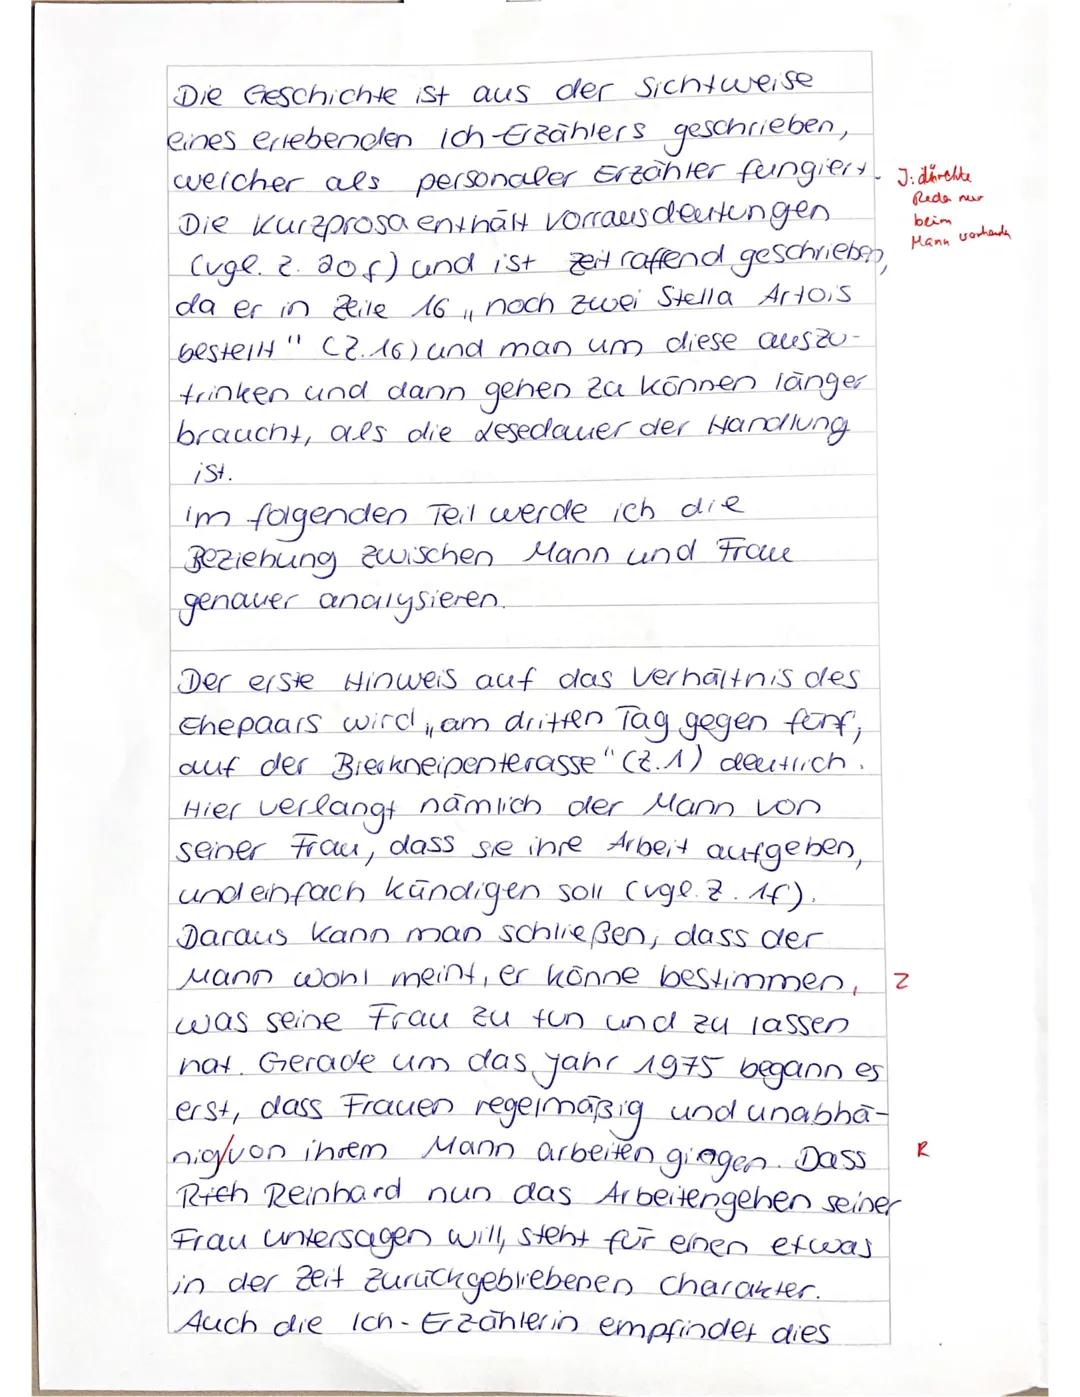 Die Geschichte ist aus der Sichtweise
eines erlebenden Ich-Erzählers geschrieben,
welcher als personaler Erzähler fungiert.
J: dürekte
Rede nur
beim
Mann vorhanden
Die Kurzprosa enthält Vorrausdeutungen
(vgl. Z. 20f) und ist zeitraffend geschrieben,
da er in Zeile 16 „noch zwei Stella Artois
bestellt" (Z. 16) und man um diese auszu-
trinken und dann gehen zu können länger
braucht, als die Lesedauer der Handlung
ist.
Im folgenden Teil werde ich die
Beziehung zwischen Mann und Frau
genauer analysieren.
Der erste Hinweis auf das Verhältnis des
Ehepaars wird „am dritten Tag gegen fünf,
auf der Bierkneipenterasse" (Z. 1) deutlich.
Hier verlangt nämlich der Mann von
seiner Frau, dass sie ihre Arbeit aufgeben,
und einfach kündigen soll (vgl. Z. 1f).
Daraus kann man schließen, dass der
Mann wohl meint, er könne bestimmen, Z
was seine Frau zu tun und zu lassen
hat. Gerade um das Jahr 1975 begann es
erst, dass Frauen regelmäßig und unabhä-
nig/von ihrem Mann arbeiten gingen. Dass R
Reinhard nun das Arbeitengehen seiner
Frau untersagen will, steht für einen etwas
in der Zeit zurückgebliebenen Charakter.
Auch die Ich-Erzählerin empfindet dies